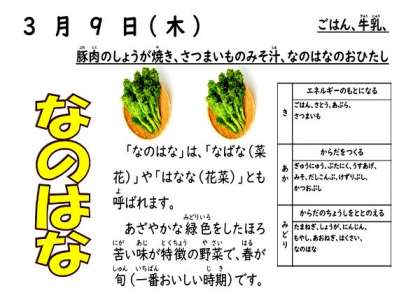 3月9日(木)
ごはん、牛乳、
豚肉のしょうが焼き、さつまいものみそ汁、なのはなのおひたし
なのはな
「なのはな」は、「なばな(菜
花)」や「はなな(花菜)」とも
呼ばれます。
あざやかな緑色をしたほろ
苦い味が特徴の野菜で、春が
旬(一番おいしい時期)です。
エネルギーのもとになる
き
ごはん、さとう、あぶら、
さつまいも
からだをつくる
あか
ぎゅうにゅう、ぶたにく、うすあげ、
みそ、だしこんぶ、けずりぶし、
かつおぶし
からだのちょうしをととのえる
みどり
たまねぎ、しょうが、にんじん、
もやし、あおねぎ、はくさい、
なのはな